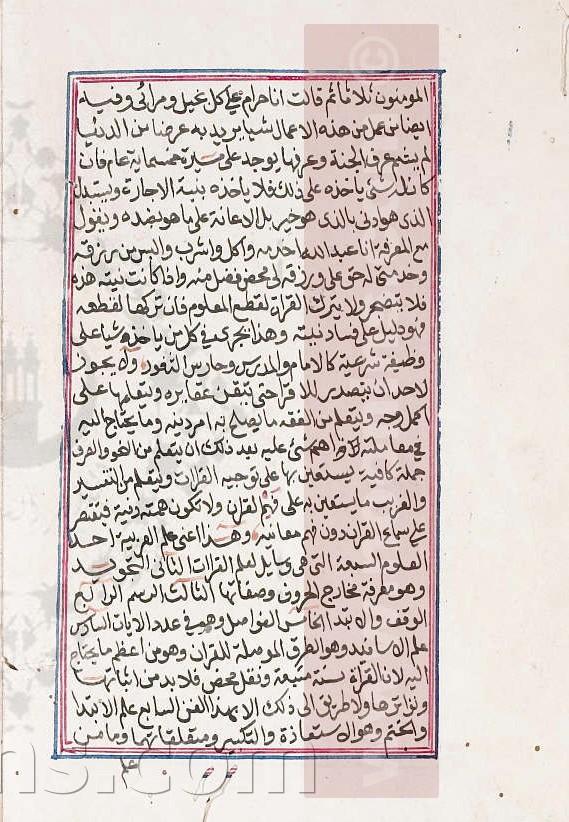 المومنون ثلاثا ثم قالت انا حرام على كل بخيل ومرائي وفيه
ايضا من عمل من هذه الاعمال شيا يريد به عرضا من الدنيا
لم يشم عرف الجنة وعرفها يوجد على مسيرة خمسماية عام فان
كان له شئ ياخذه على ذلك فلا ياخذه بنية الاجارة ويستبدل
الذي هو ادنى بالذي هو خير بل الاعانة على ما هو بصدده ويقول
مع المعرفة انا عبد الله اخدمه واكل واشرب والبس من رزقه
وخدمتي له حق علي ورزقه لي محض فضل منه واذا كانت نيته هذه
فلا يتضجر ولا يترك القراة لقطع المعلوم فان تركها لقطعه
فهو دليل على فساد نيته وهذا يجري في كل من ياخذ شيا على
وظيفة شرعية كالامام والمدرس وحارس الثغور ولا يجوز
لاحد ان يتصدر للاقرا حتى يتقن عقايده ويتعلمها على
اكمل وجه ويتعلم من الفقه ما يصلح به امر دينه وما يحتاج اليه
في معاملته واهم شئ عليه بعد ذلك ان يتعلم من النحو والصرف
جملة كافية يستعين بها على توجيه القرات ويتعلم من التفسير
والغريب ما يستعين به على فهم القران ولا تكون همته دنية فيقتصر
على سماع القران دون فهم معانيه وهذا اعني علم العربية احد
العلوم السبعة التي هي وسايل لعلم القرات الثاني التجويد
وهو معرفة مخارج الحروف وصفاتها الثالث الرسم الرابع
الوقف والابتدا الخامس الفواصل وهو فن عدد الايات السادس
علم الاسانيد وهو الطرق الموصلة للقران وهو من اعظم ما يحتاج
اليه لان القراة سنة متبعة ونقل محض فلا بد من اثباتها
وتواترها ولا طريق الى ذلك الا بهذا الفن السابع علم الابتدا
والختم وهو الاستعاذة والتكبير ومتعلقاتهما وما من
علم
ns.com